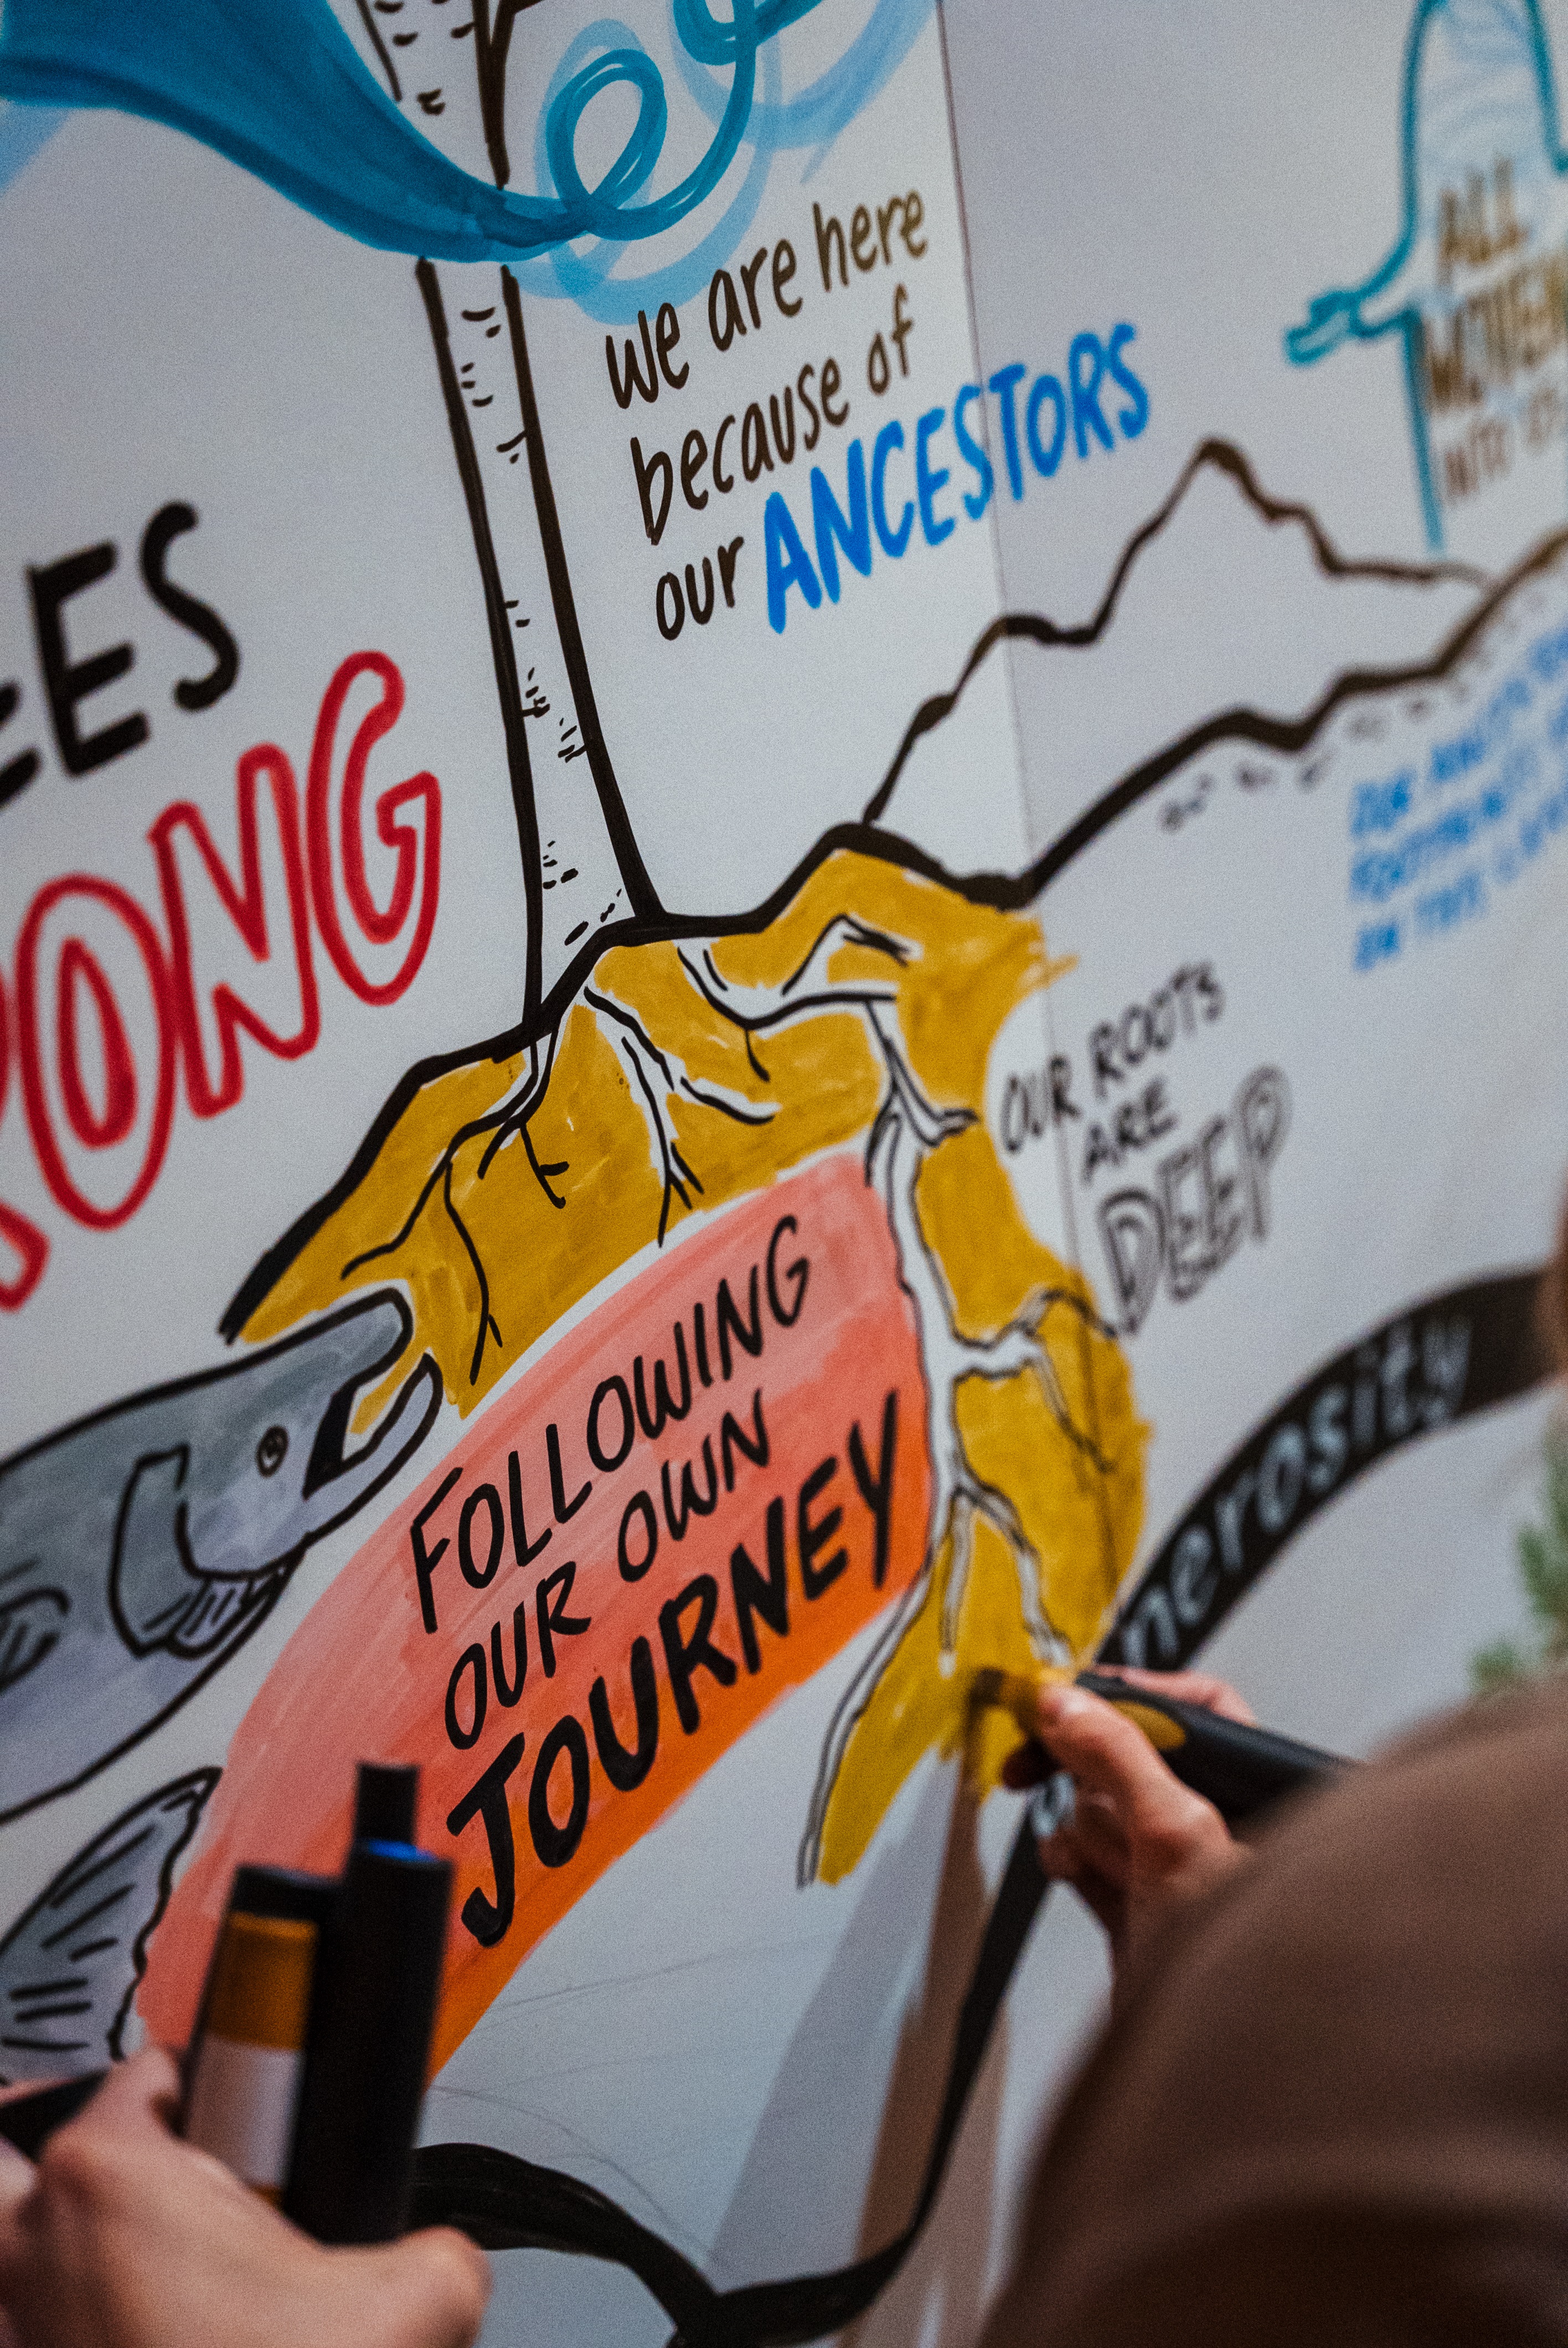 we are here
because of
our ANCESTORS
ALL
EES
ONG
OUR ROOTS
ARE
DEEP
FOLLOWING
OUR OWN
JOURNEY
nerosity